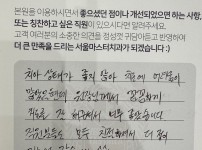 본원을 이용하시면서 좋았던 점이나 개선되었으면 하는 사항,
또는 칭찬하고 싶은 직원이 있으시다면 알려주세요.
고객 여러분의 소중한 의견을 정성껏 귀담아듣고 반영하여
더 큰 만족을 드리는 서울마스터치과가 되겠습니다 :)
치아 상태가 좋지 않아
많았는데 원장님께서 꼼꼼하게
치료를 잘 해주셔서 너무 좋았습니다.
직원분들도 모두 친절하셔서 더 좋